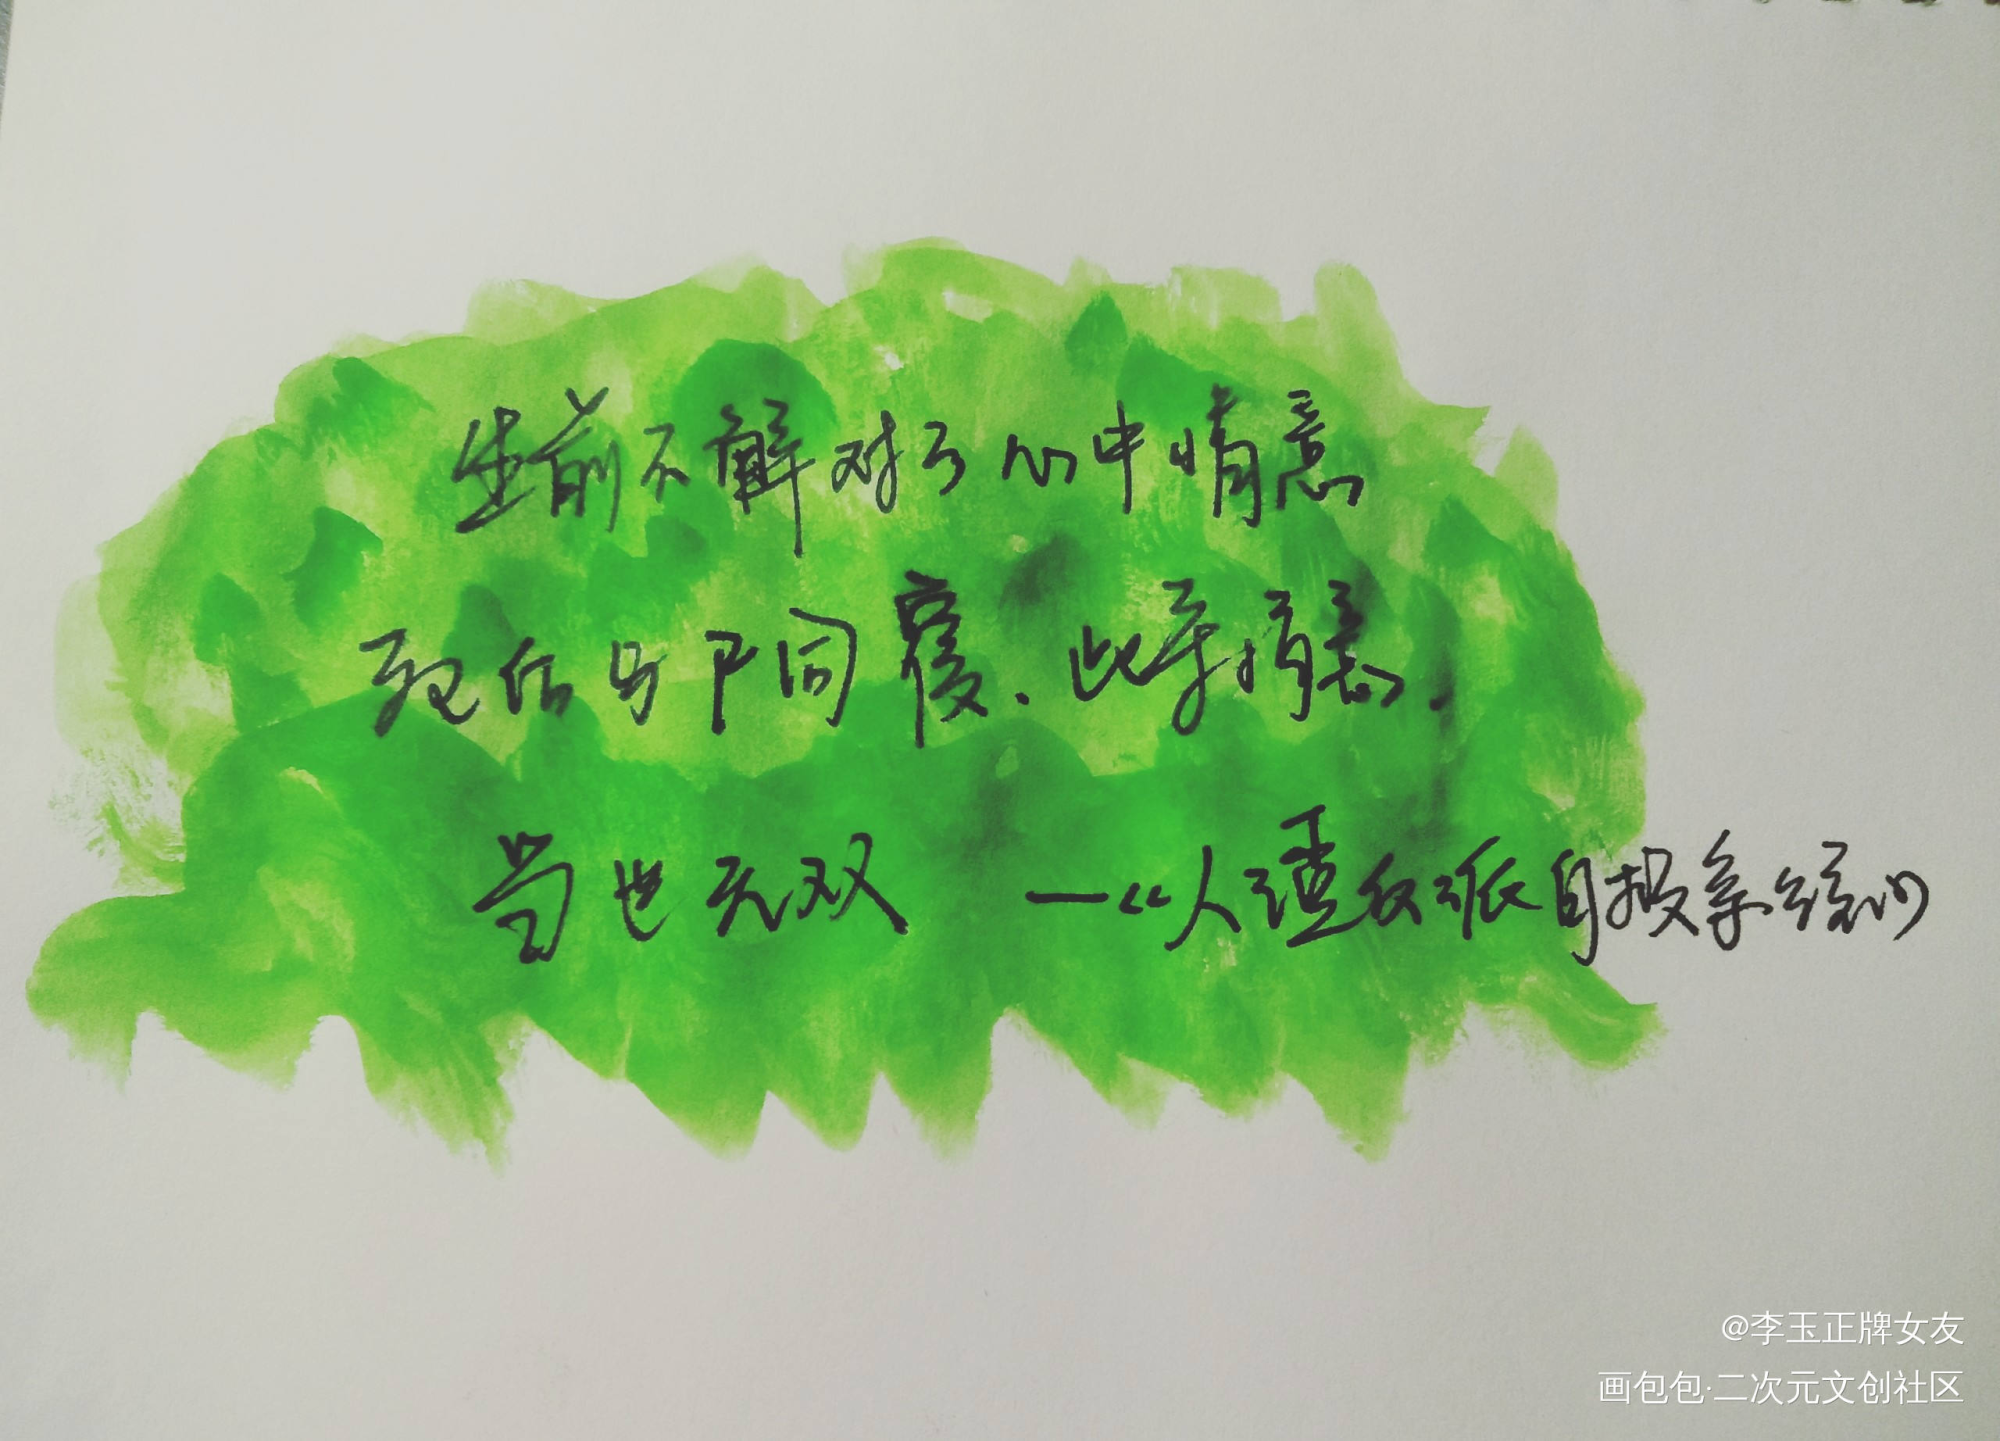 生前不解对方心中情意
死后与尸同寝.此等情意.
当世无双 —《人渣反派自救系统》
@李玉正牌女友
画包包·二次元文创社区